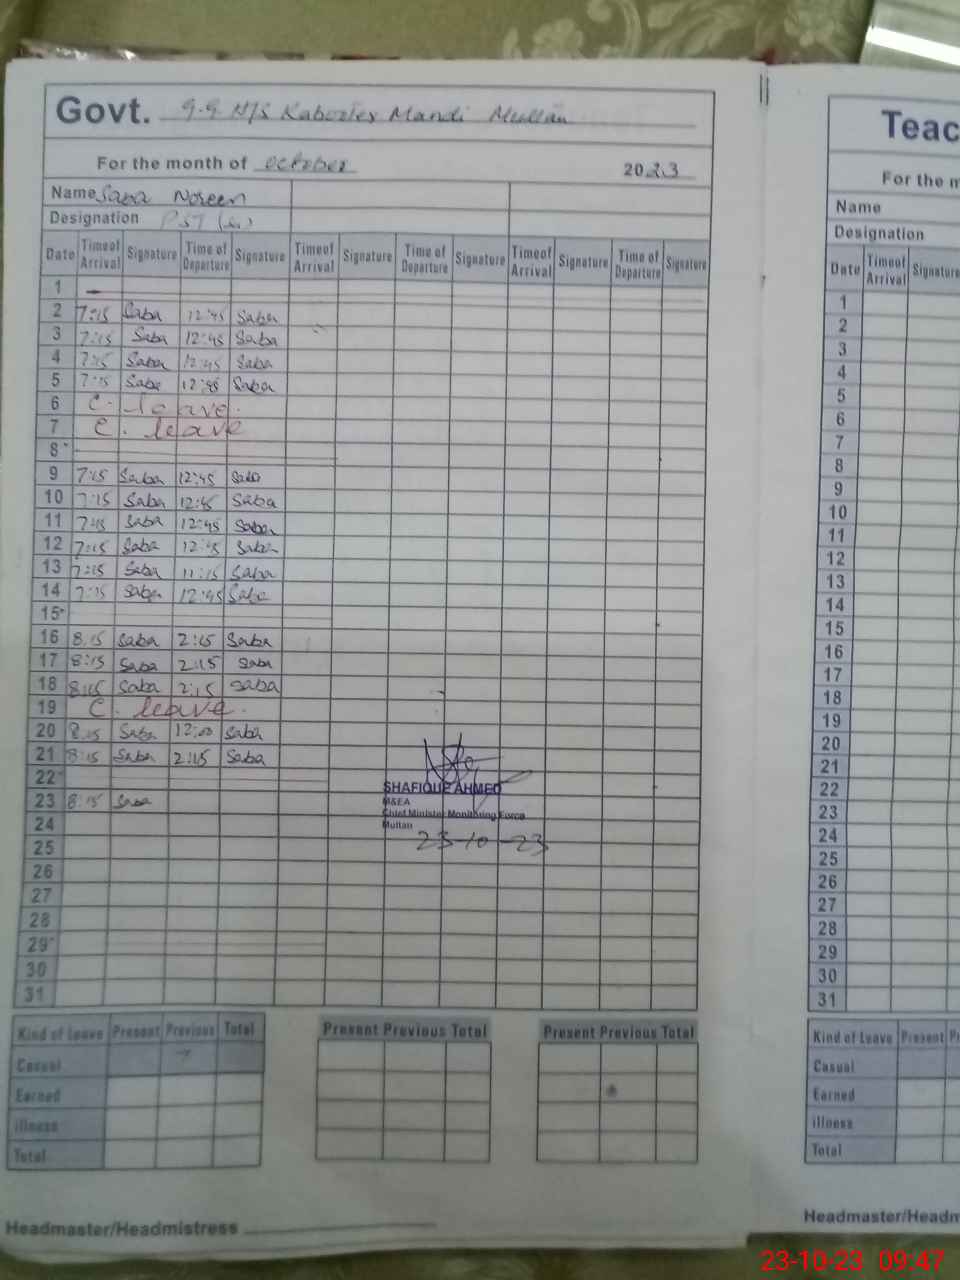 Govt. G.G H/S Mandi Multan
For the month of October 2023
Name Saba Noreen
Designation PST
Date Timeof Arrival Signature Time of Departure Signature Timeof Arrival Signature Time of Departure Signature Timeof Arrival Signature Time of Departure Signature
1 -
2 7:15 Saba 12:45 Saba
3 7:15 Saba 12:45 Saba
4 7:15 Saba 12:45 Saba
5 7:15 Saba 12:45 Saba
6 C. leave.
7 C. leave
8
9 7:15 Saba 12:45 Saba
10 7:15 Saba 12:45 Saba
11 7:15 Saba 12:45 Saba
12 7:15 Saba 12:45 Saba
13 7:15 Saba 11:15 Saba
14 7:15 Saba 12:45 Saba
15
16 8:15 Saba 2:15 Saba
17 8:15 Saba 2:15 Saba
18 8:15 Saba 2:15 Saba
19 C. leave.
20 8:15 Saba 12:00 Saba
21 8:15 Saba 2:15 Saba
22
23 8:15 Saba
24
25
26
27
28
29
30
31
SHAFIQUE AHMED
M&EA
Chief Minister Monitoring Force
Multan
23-10-23
Kind of Leave Present Previous Total Present Previous Total Present Previous Total
Casual
Earned
illness
Total
Headmaster/Headmistress
Teac
For the m
Name
Designation
Date Timeof Arrival Signature
1
2
3
4
5
6
7
8
9
10
11
12
13
14
15
16
17
18
19
20
21
22
23
24
25
26
27
28
29
30
31
Kind of Leave Present Pr
Casual
Earned
illness
Total
Headmaster/Headm
23-10-23 09:47